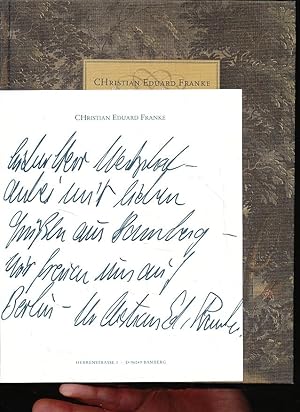 CHRISTIAN EDUARD FRANKE
CHRISTIAN EDUARD FRANKE
Lieber Herr
anbei mit lieben
Grüßen aus Bamberg –
Wir freuen uns auf
Berlin –
HERRENSTRASSE 2 · D-96049 BAMBERG